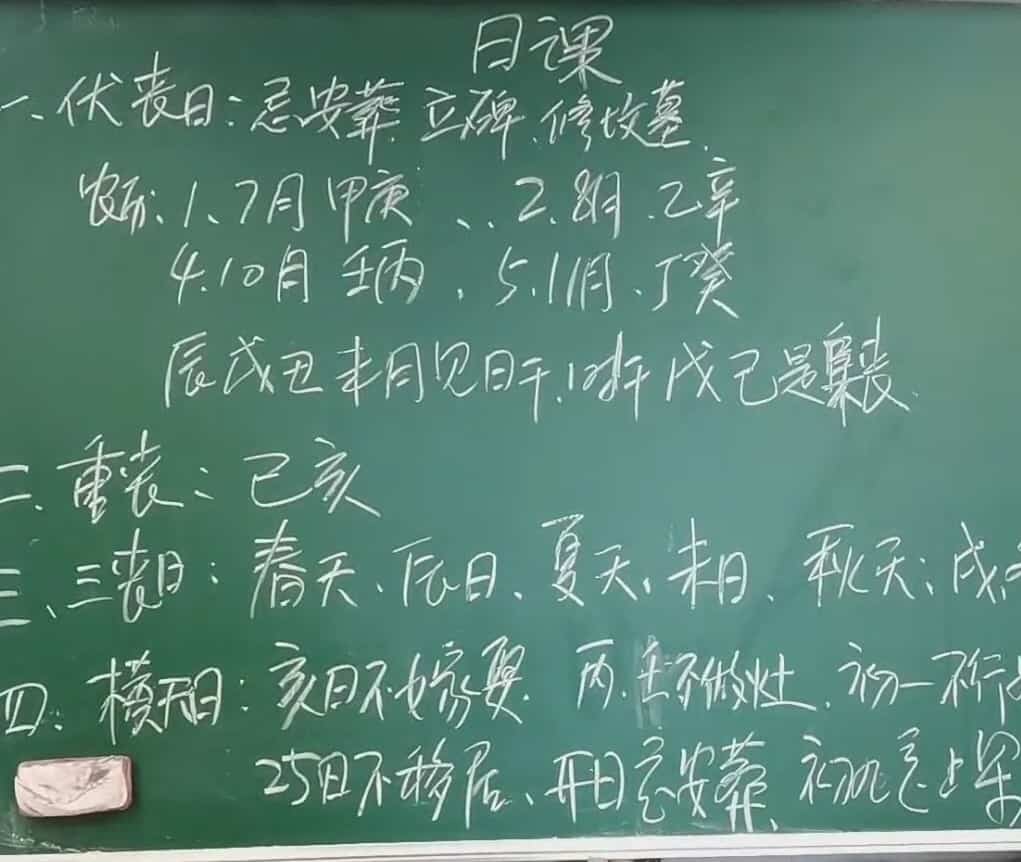 日课
一、伏丧日：忌安葬、立碑、修坟墓、
农历：1、7月甲庚、、2、8月、乙辛
4、10月壬丙、5、11月、丁癸
辰戌丑未月见日干、时干戊己是丧、
二、重丧：己亥
三、三丧日：春天、辰日、夏天、未日、秋天、戌
四、横天日：亥日不嫁娶 丙、壬不做灶、初一不行
25日不移居、开日忌安葬、初九忌上梁